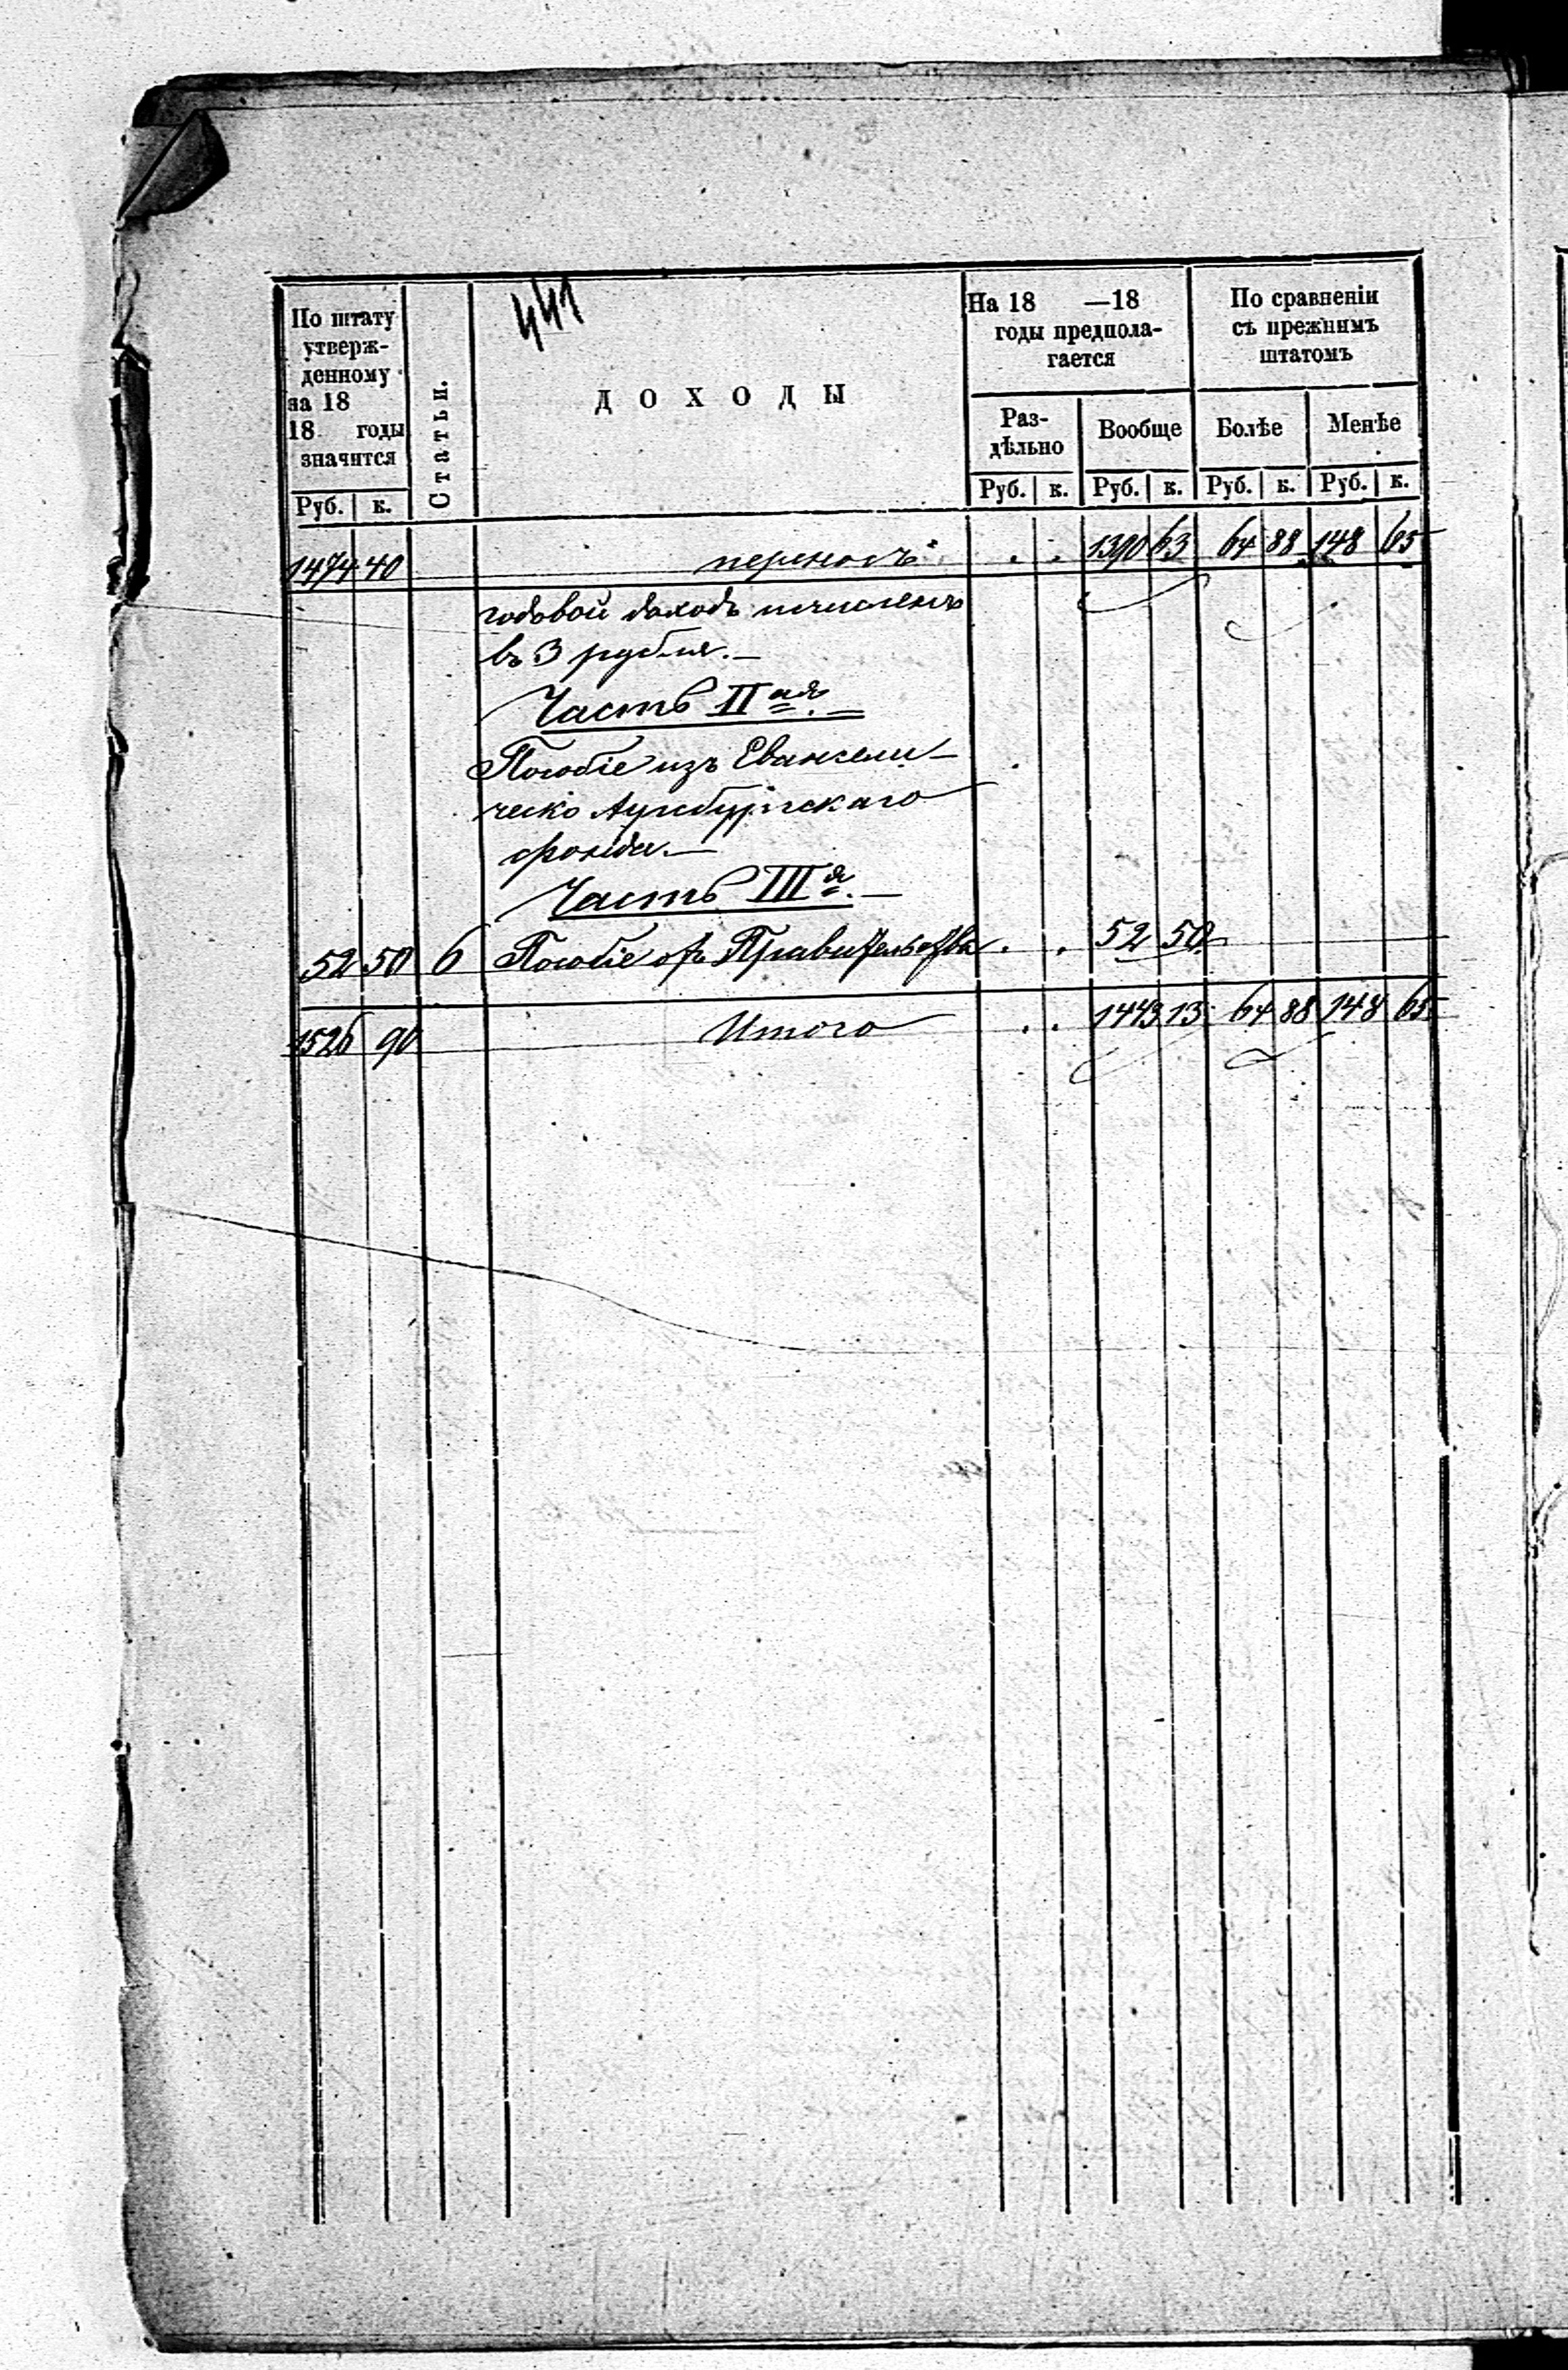 441
По штату
утверж-
денному
на 18
18 годы
значится
Руб. к.
Статьи.
ДОХОДЫ
На 18 —18
годы предпола-
гается
Раз-
дѣльно
Руб. к.
Вообще
Руб. к.
По сравненіи
съ прежнимъ
штатомъ
Болѣе
Руб. к.
Менѣе
Руб. к.
1474 40 переносъ . . 1390 63 64 88 148 65
годовой доходъ исчисленъ
въ 3 рубля.—
Часть IIая.—
Пособіе изъ Евангели-
ческо Аугсбургскаго
фонда.—
Часть IIIя.—
52 50 6 Пособіе отъ Правительства . . 52 50
1526 90 Итого . . 1443 13 64 88 148 65